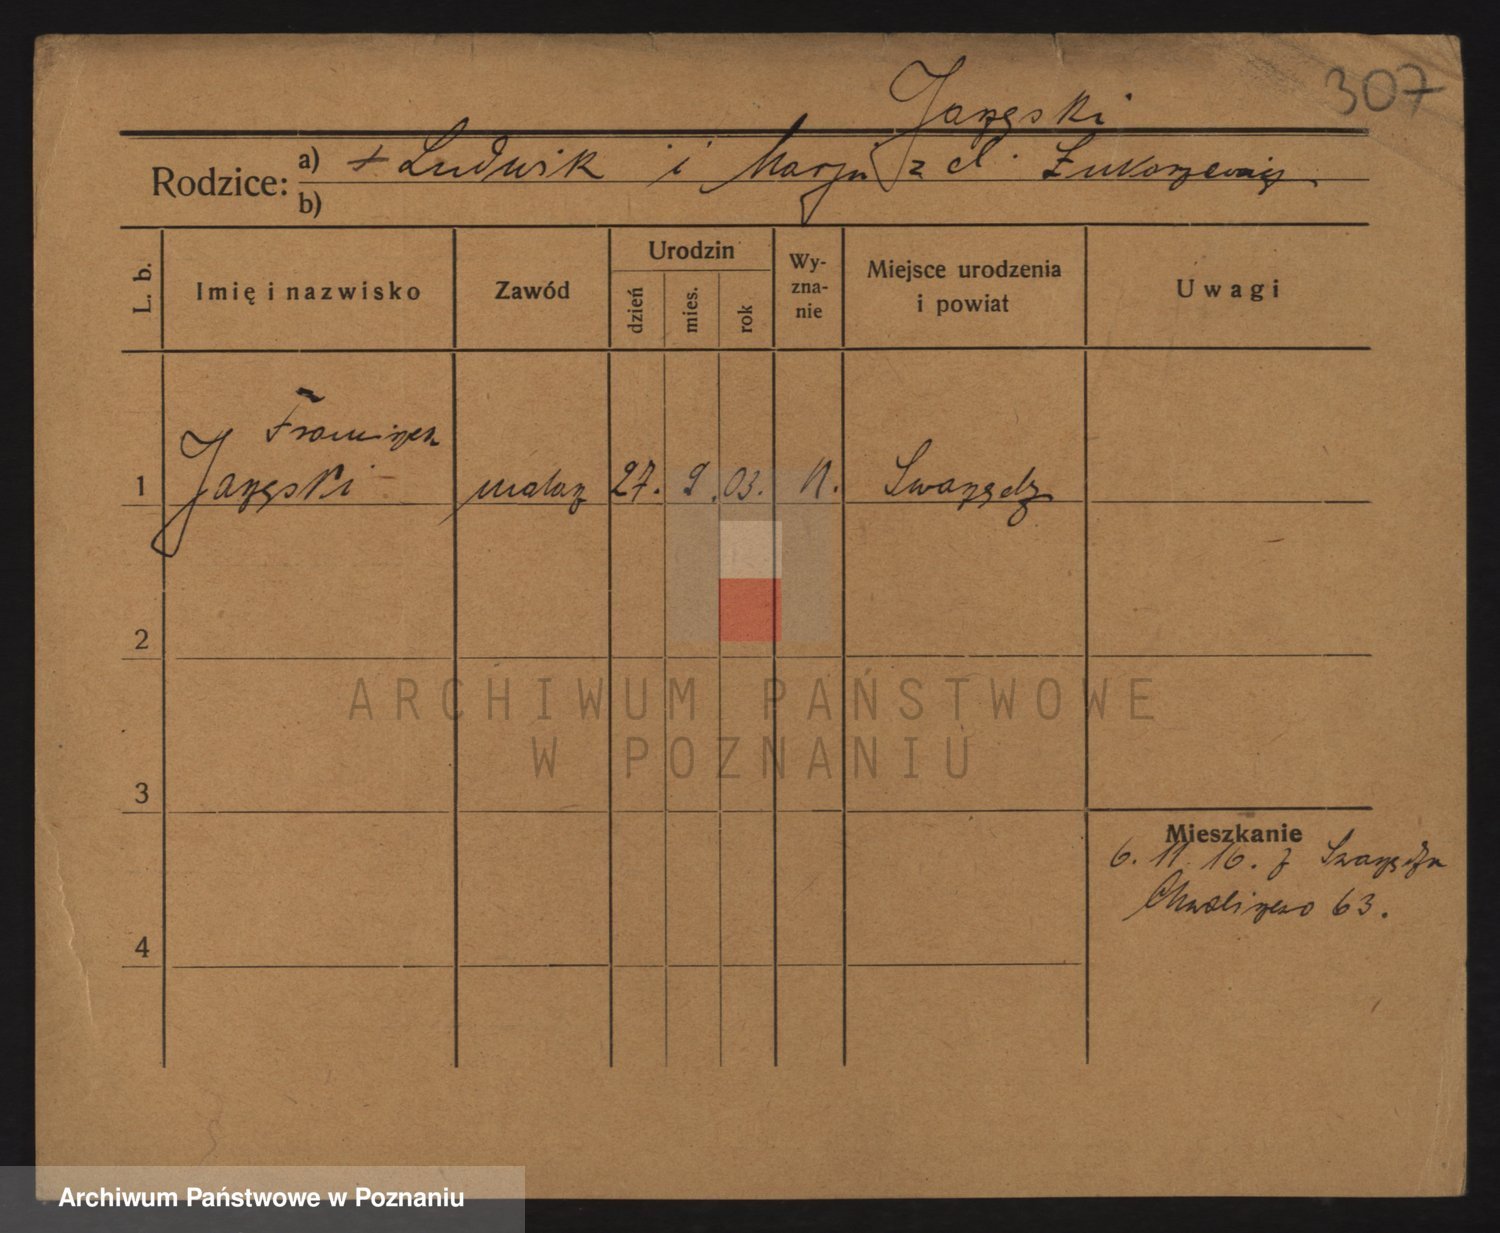 307
Jazgski
Rodzice: a) + Ludwik i Marja z d.
b)
L. b. Imię i nazwisko Zawód Urodzin dzień mies. rok Wy-zna-nie Miejsce urodzenia i powiat Uwagi
Franciszek
1 Jazgski malarz 27. 9. 03. Swarzędz
2
3
ARCHIWUM PAŃSTWOWE
W POZNANIU
Mieszkanie
6. 11. 16. z Swarzędza
63.
4
Archiwum Państwowe w Poznaniu